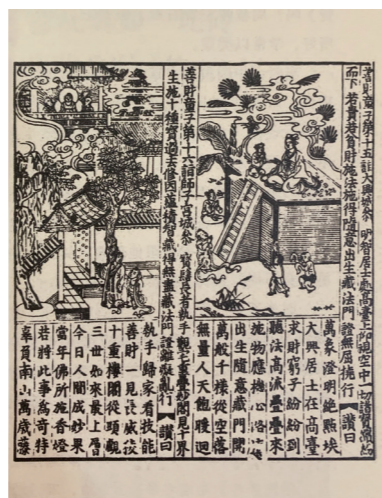 善財童子第十五詣大興城參 明智居士處高臺上仰視空中一切諸寶
而下若貴若貧財施法施得隨意出生藏法門證無屈撓行 讚曰
萬象澄明絕點埃
大興居士在高臺
求財窮子紛紛到
聽法高流疊疊來
施物應機心
出生隨意藏門開
萬般千樣從空落
無量人天飽暖迴
善財童子第十六詣師子宮城參 寶髻長者執手觀七重疊妙閣見十界
生施十種寶迴去修因蘊積智藏得無盡藏法門證離癡亂行 讚曰
執手歸家看技能
善財一見長威
十重樓閣從頭觀
三世如來最上層
今日人間成妙果
當年佛所施香燈
若將此事為奇特
辜負南山萬歲藤